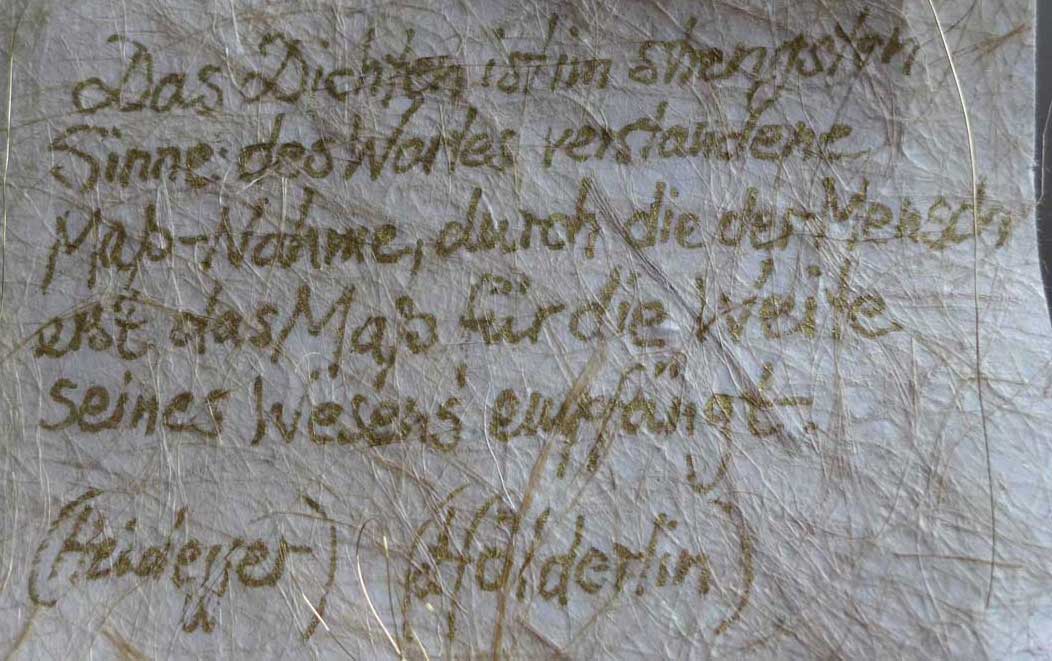 Das Dichten ist im strengsten
Sinne des Wortes verstandene
Maß-Nahme, durch die der Mensch
erst das Maß für die Weite
seines Wesens empfängt.
(Heidegger) (Hölderlin)